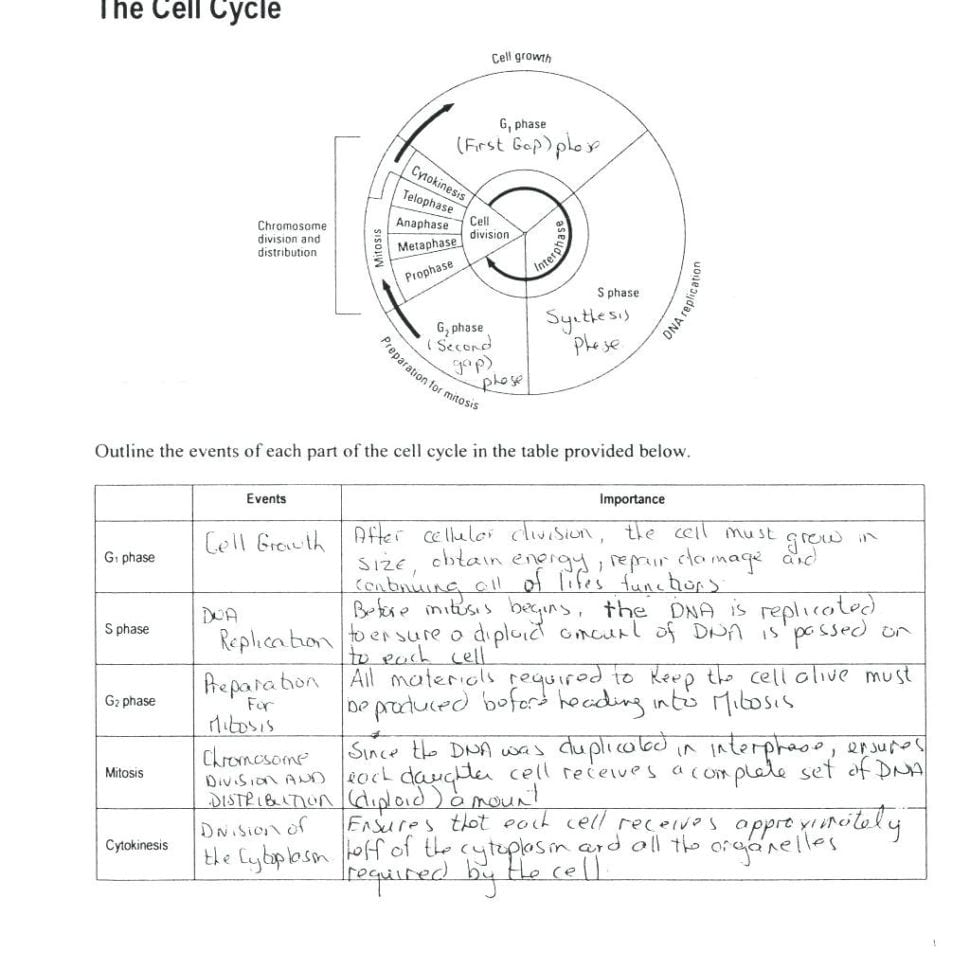 The Cell Cycle
Cell growth
G₁ phase
(First Gap) phase
Cytokinesis
Telophase
Anaphase
Metaphase
Prophase
Cell
division
Interphase
Mitosis
Chromosome
division and
distribution
S phase
Synthesis
Phase
DNA replication
G₂ phase
(Second
gap)
phase
Preparation for mitosis
Outline the events of each part of the cell cycle in the table provided below.
Events
Importance
G₁ phase
Cell Growth
After cellular division, the cell must grow in
size, obtain energy, repair damage and
continuing all of lifes functions
S phase
DNA
Replication
Before mitosis begins, the DNA is replicated
to ensure a diploid amount of DNA is passed on
to each cell
G₂ phase
Preparation
For
Mitosis
All materials required to keep the cell alive must
be produced before heading into Mitosis
Mitosis
Chromosome
DIVISION AND
DISTRIBUTION
Since the DNA was duplicated in interphase, ensures
each daughter cell receives a complete set of DNA
(diploid) amount
Cytokinesis
Division of
the Cytoplasm
Ensures that each cell receives approximately
half of the cytoplasm and all the organelles
required by the cell